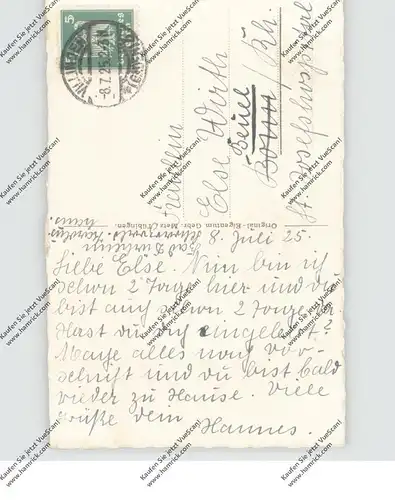 VILLINGEN
-8.7.25
5
Fräulein
Else Wirth
Beuel
Bonn / Rh.
St. Josefshospital
Original-Eigentum Gebr. Metz, Tübingen.
Bad Dürrheim
8. Juli 25.
Liebe Else. Nun bin ich
schon 2 Tage hier und du
bist auch schon 2 Tage
Hast du dich eingelebt?
Mache alles nach Vor-
schrift und du bist bald
wieder zu Hause. Viele
Grüße dein
Hannes.
Kaufen Sie jetzt VueScan!
www.hamrick.com